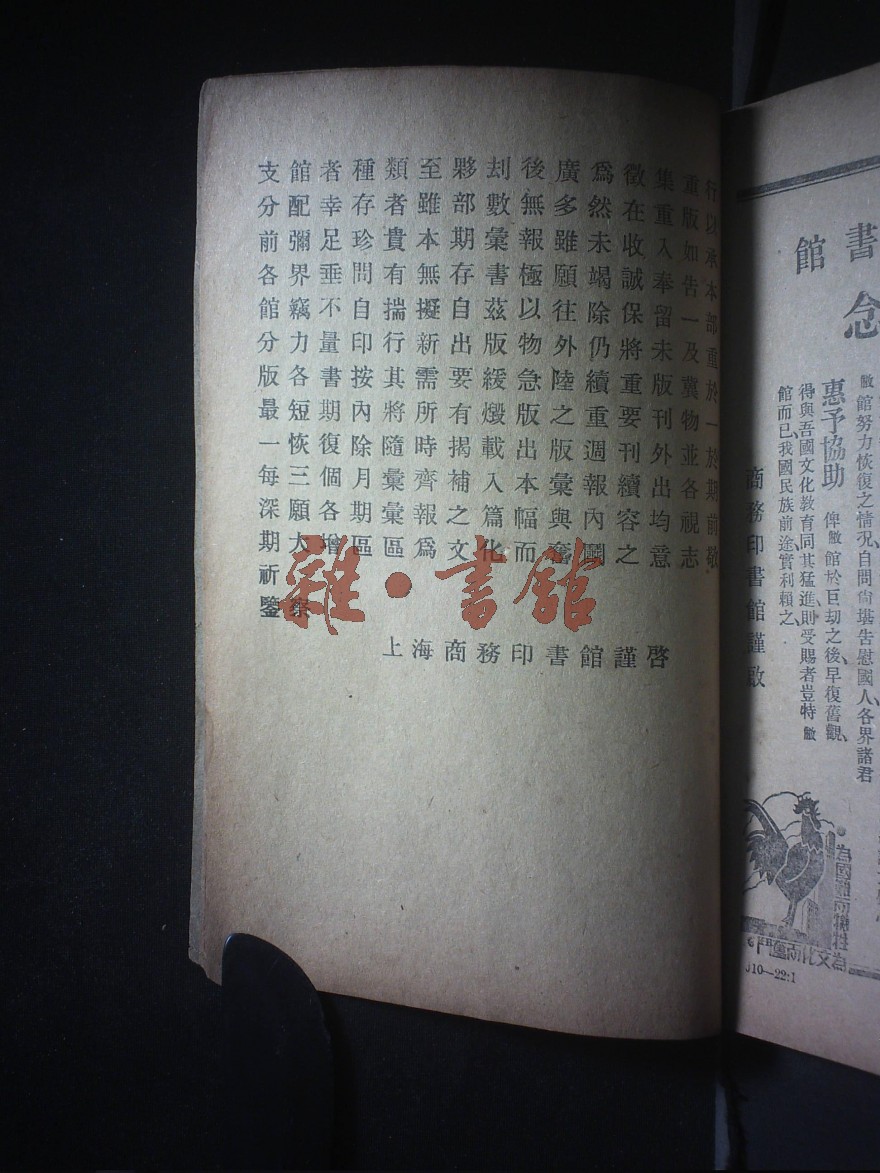 支館者種類至夥刦後廣爲徵集重行
分配幸存者雖部數無多然在重版以
前彌足珍貴本期彙報雖未收入如承
各界垂問有無存書極願竭誠奉告本
館竊不自揣擬自茲以往除保留一部
分力量印行新出版物外仍將未及重
版各書按其需要緩急陸續重版冀於
最短期內將所有燬版之重要刊物一
一恢復除隨時揭載出版週刊外並於
每三個月彙齊補入本彙報續出各期
深願各期彙報之篇幅與內容均視前
期大增區區爲文化而奮鬭之意志敬
祈
鑒察
上海商務印書館謹啓
雜·書館
書館
念
敝館努力恢復之情況、自問尙堪告慰國人、各界諸君
惠予協助 俾敝館於巨劫之後、早復舊觀、
得與吾國文化教育同其猛進、則受賜者豈特敝
館而已、我國民族前途、實利賴之、
商務印書館謹啟
為國難而犧牲
為文化而奮鬥
J10—22:1